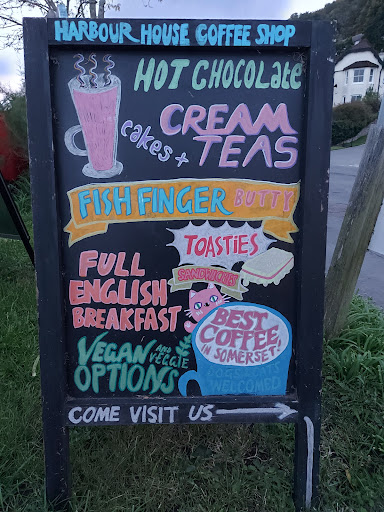 HARBOUR HOUSE COFFEE SHOP
HOT CHOCOLATE
CREAM
cakes +
TEAS
FISH FINGER BUTTY
TOASTIES
SANDWICHES
FULL
ENGLISH
BREAKFAST
BEST
COFFEE
IN SOMERSET!
VEGAN AND VEGGIE
OPTIONS
WELCOMED
COME VISIT US